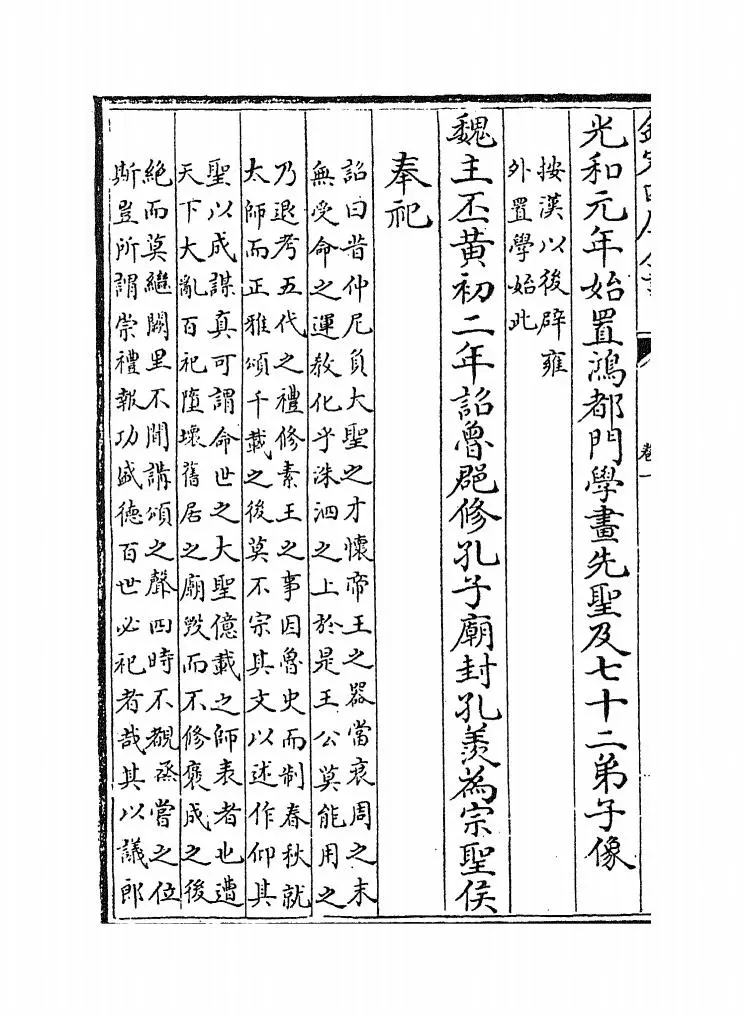 欽定四庫全書
卷一
光和元年始置鴻都門學畫先聖及七十二弟子像
按漢以後辟雍
外置學始此
魏主丕黄初二年詔魯郡修孔子廟封孔羨為宗聖侯
奉祀
詔曰昔仲尼負大聖之才懷帝王之器當衰周之末
無受命之運教化乎洙泗之上於是王公莫能用之
乃退考五代之禮修素王之事因魯史而制春秋就
太師而正雅頌千載之後莫不宗其文以述作仰其
聖以成謀真可謂命世之大聖億載之師表者也遭
天下大亂百祀墮壞舊居之廟毀而不修褒成之後
絶而莫繼闕里不聞講頌之聲四時不覩烝嘗之位
斯豈所謂崇禮報功盛德百世必祀者哉其以議郎